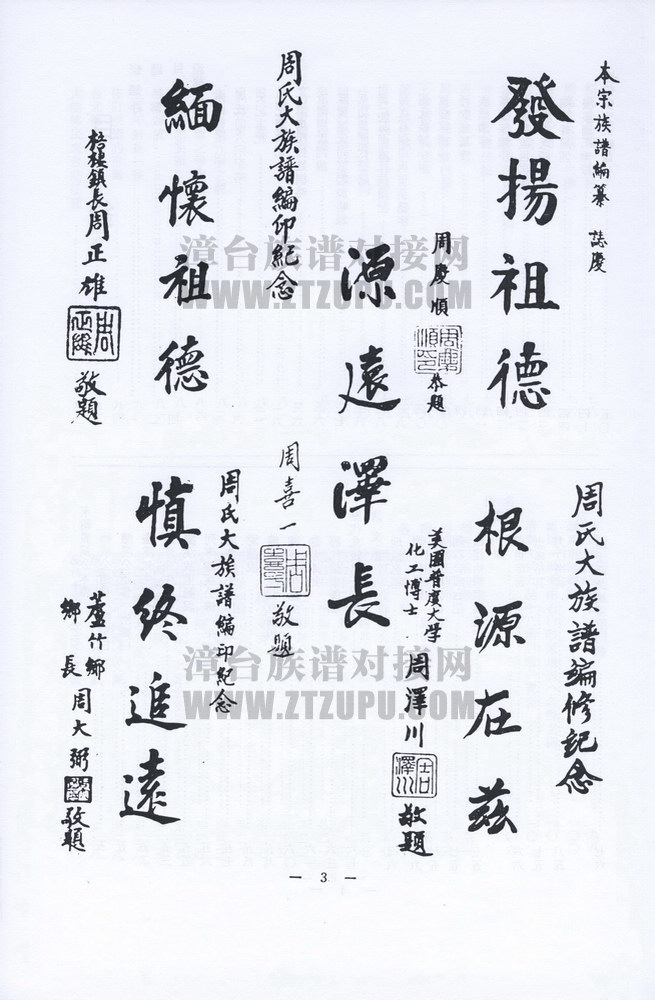 本宗族譜編纂 誌慶
發揚祖德
周慶順
恭題
周氏大族譜編修紀念
根源在茲
美國普度大学
化工博士
周澤川
敬題
周氏大族譜編印紀念
源遠澤長
周喜一
敬題
緬懷祖德
梧棲鎮長周正雄
敬題
周氏大族譜編印紀念
慎終追遠
蘆竹鄉
鄉長
周大弼
敬題
漳台族谱对接网
WWW.ZTZUPU.COM
漳台族谱对接网
WWW.ZTZUPU.COM
— 3 —